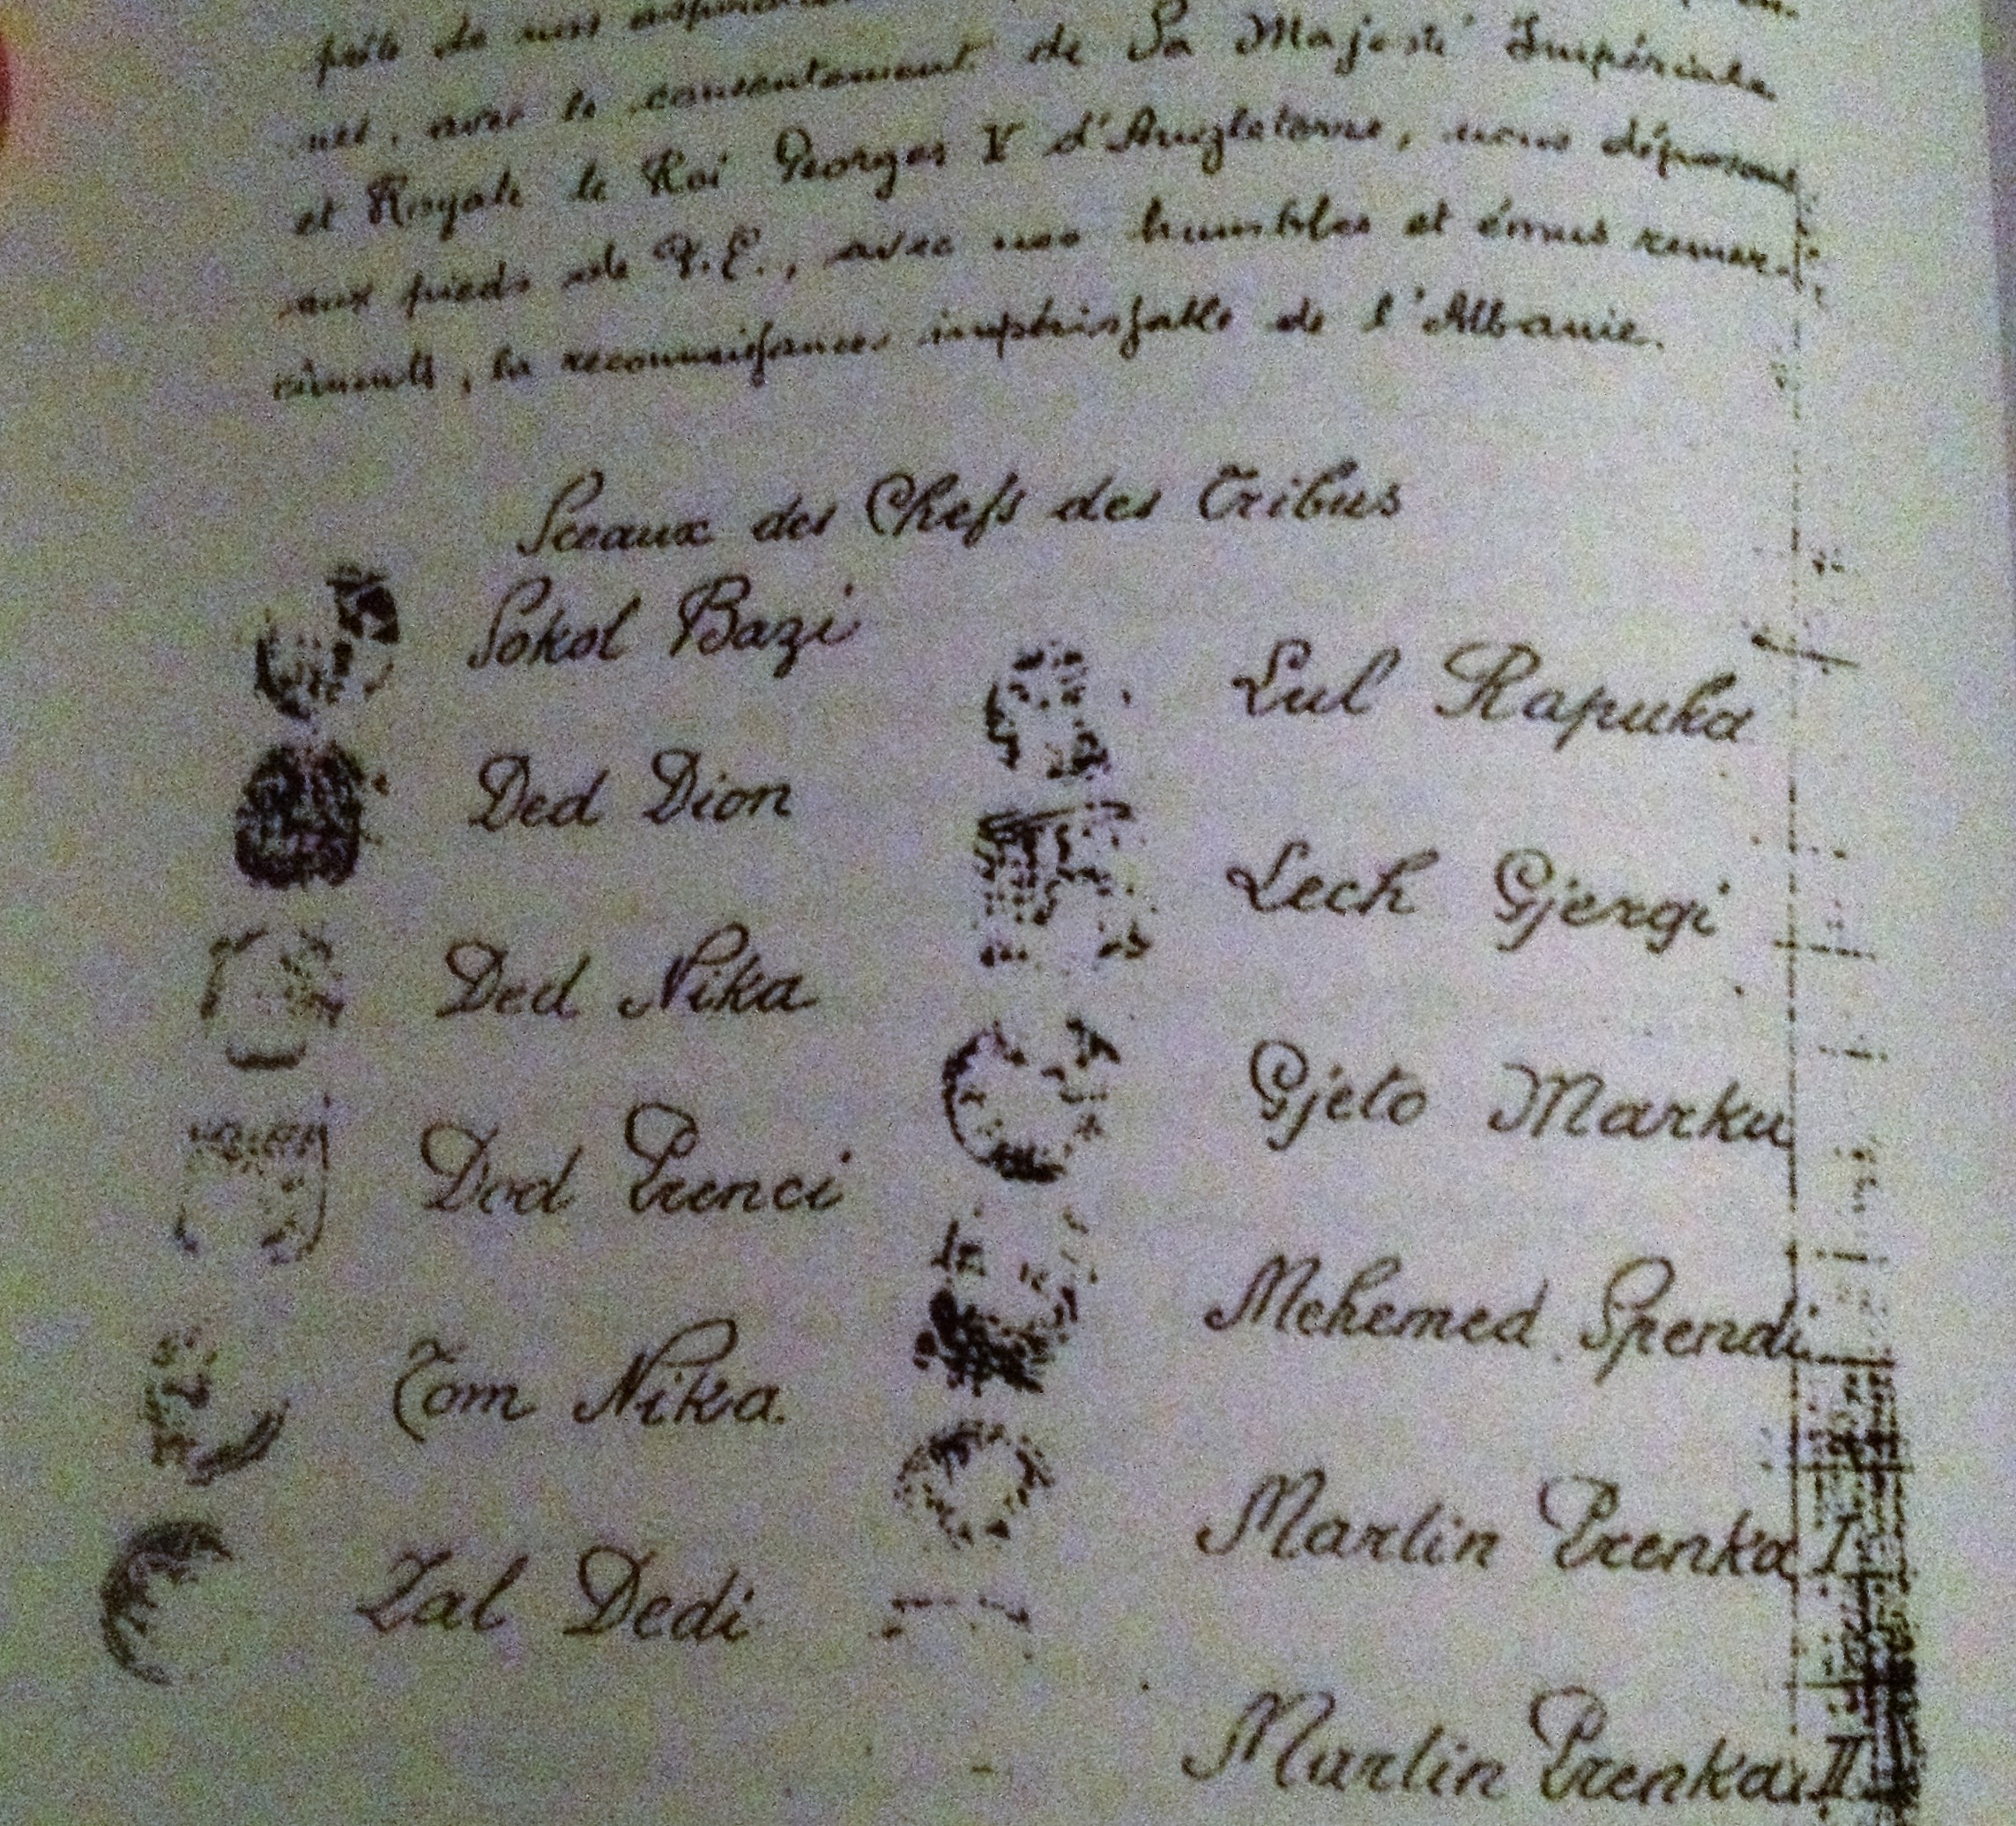 de nos
nes, avec le consentement de Sa Majesté Impériale
et Royale le Roi Georges V d'Angleterre, nous déposons
aux pieds de V.E., avec nos humbles et émus remer-
ciments, la reconnaissance impérissable de l'Albanie.
Sceaux des Chefs des Tribus
Sokol Bazi
Ded Dion
Ded Nika
Dod Prenci
Tom Nika.
Zal Dedi
Lul Rapuka
Lech Gjergi
Gjeto Marku
Mehemed Spendi
Martin Prenka I
Martin Prenka II